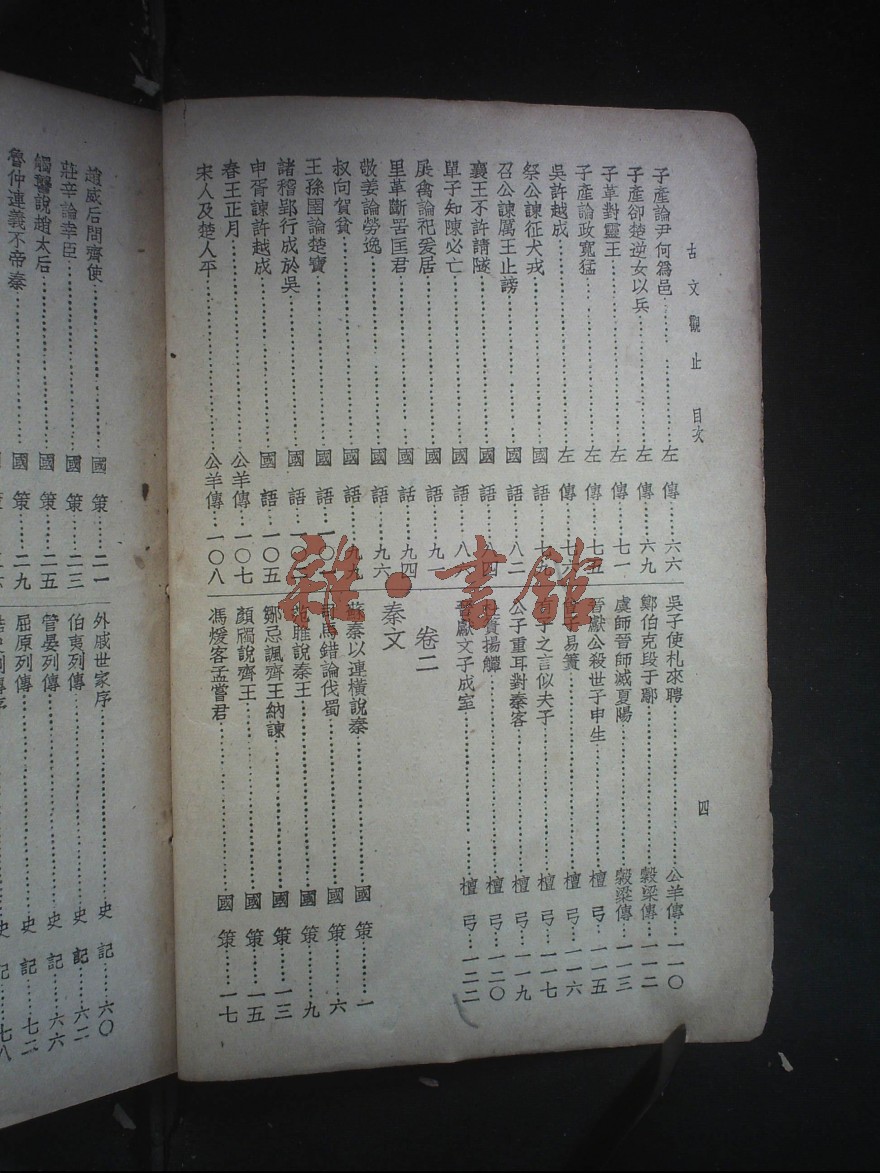 古文觀止 目次
四
子產論尹何爲邑……左傳……六六
子產卻楚逆女以兵……左傳……六九
子革對靈王……左傳……七一
子產論政寬猛……左傳……七五
吳許越成……左傳……七六
祭公諫征犬戎……國語……七九
召公諫厲王止謗……國語……八二
襄王不許請隧……國語……八四
單子知陳必亡……國語……八
展禽論祀爰居……國語……九一
里革斷罟匡君……國語……九四
敬姜論勞逸……國語……九六
叔向賀貧……國語……九九
王孫圉論楚寶……國語……一〇
諸稽郢行成於吳……國語……一〇
申胥諫許越成……國語……一〇五
春王正月……公羊傳……一〇七
宋人及楚人平……公羊傳……一〇八
吳子使札來聘……公羊傳……一一〇
鄭伯克段于鄢……穀梁傳……一一二
虞師晉師滅夏陽……穀梁傳……一一三
晉獻公殺世子申生……檀弓……一一五
易簀……檀弓……一一六
子之言似夫子……檀弓……一一七
公子重耳對秦客……檀弓……一一九
杜蕢揚觶……檀弓……一二〇
晉獻文子成室……檀弓……一二二
卷二
秦文
蘇秦以連橫說秦……國策……一
司馬錯論伐蜀……國策……六
范雎說秦王……國策……九
鄒忌諷齊王納諫……國策……一三
顏斶說齊王……國策……一五
馮煖客孟嘗君……國策……一七
趙威后問齊使……國策……二一
莊辛論幸臣……國策……二三
觸讋說趙太后……國策……二五
魯仲連義不帝秦……國策……二九
外戚世家序……史記……六〇
伯夷列傳……史記……六二
管晏列傳……史記……六六
屈原列傳……史記……七二
史記……七八
雜·書館